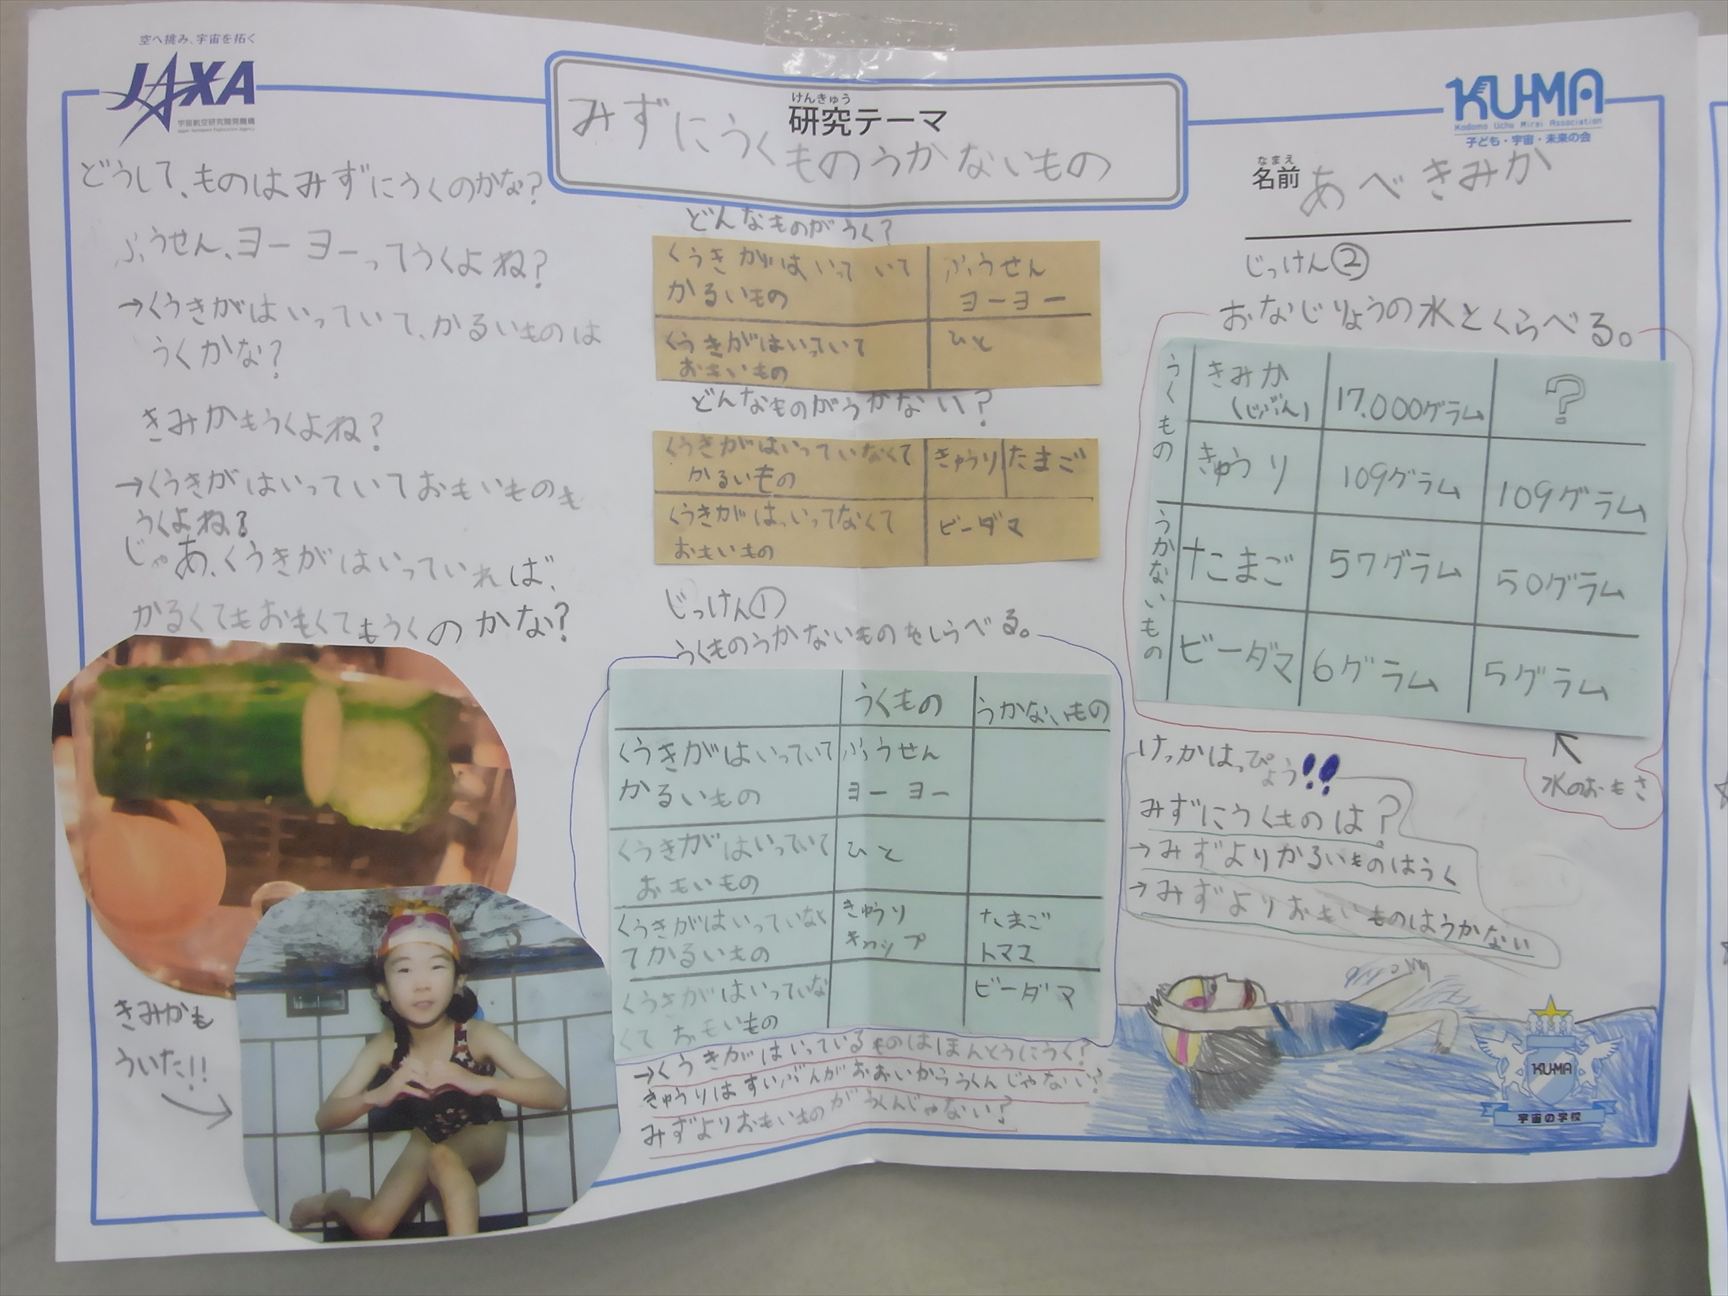 空へ挑み、宇宙を拓く
JAXA
宇宙航空研究開発機構
Japan Aerospace Exploration Agency
けんきゅう
研究テーマ
みずにうくものうかないもの
KU-MA
Kodomo Uchu Mirai Association
子ども・宇宙・未来の会
なまえ
名前 あべきみか
どうして、ものはみずにうくのかな?
ふうせん、ヨーヨーってうくよね?
→くうきがはいっていて、かるいものは
うくかな?
きみかもうくよね?
→くうきがはいっていておもいものも
うくよね?
じゃあ、くうきがはいっていれば、
かるくてもおもくてもうくのかな?
きみかも
ういた!!
どんなものがうく?
くうきがはいっていて
かるいもの
ふうせん
ヨーヨー
くうきがはいっていて
おもいもの
ひと
どんなものがうかない?
くうきがはいっていなくて
かるいもの
きゅうり たまご
くうきがはいってなくて
おもいもの
ビーダマ
じっけん①
うくものうかないものをしらべる。
うくもの うかないもの
くうきがはいっていて
かるいもの
ふうせん
ヨーヨー
くうきがはいっていて
おもいもの
ひと
くうきがはいっていなく
てかるいもの
きゅうり
キャップ
たまご
トマト
くうきがはいっていな
くておもいもの
ビーダマ
→くうきがはいっているものはほんとうにうく!
きゅうりはすいぶんがおおいからうくんじゃない?
みずよりおもいものがうくんじゃない?
じっけん②
おなじりょうの水とくらべる。
うくもの
きみか
(じぶん)
17.000グラム ?
きゅうり 109グラム 109グラム
うかないもの
たまご 57グラム 50グラム
ビーダマ 6グラム 5グラム
水のおもさ
けっかはっぴょう!!
みずにうくものは?
→みずよりかるいものはうく
→みずよりおもいものはうかない
KU-MA
宇宙の学校